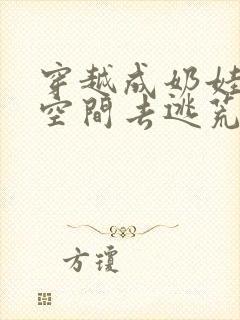 穿越成奶娃
空間去逃荒
方瓊